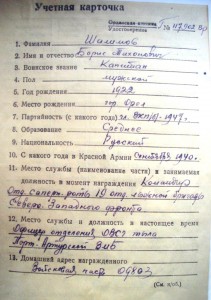 Учетная карточка
Удостоверение
1. Фамилия Шаламов
2. Имя и отчество Борис Тихонович
3. Воинское звание Капитан
4. Пол мужской
5. Год рождения 1922
6. Место рождения гор. Орск
7. Партийность (с какого года) чл. ВКП(б)-1947 г.
8. Образование Среднее
9. Национальность Русский
10. С какого года в Красной Армии Сентября 1940 г.
11. Место службы (наименование части) и занимаемая
должность в момент награждения
Отд. Саперн. рота 19 отд. бригады
Северо Западного фронта
12. Место службы и должность в настоящее время
Офицер отделения тыла
13. Домашний адрес награжденного
Войсковая часть
(См. на об.)